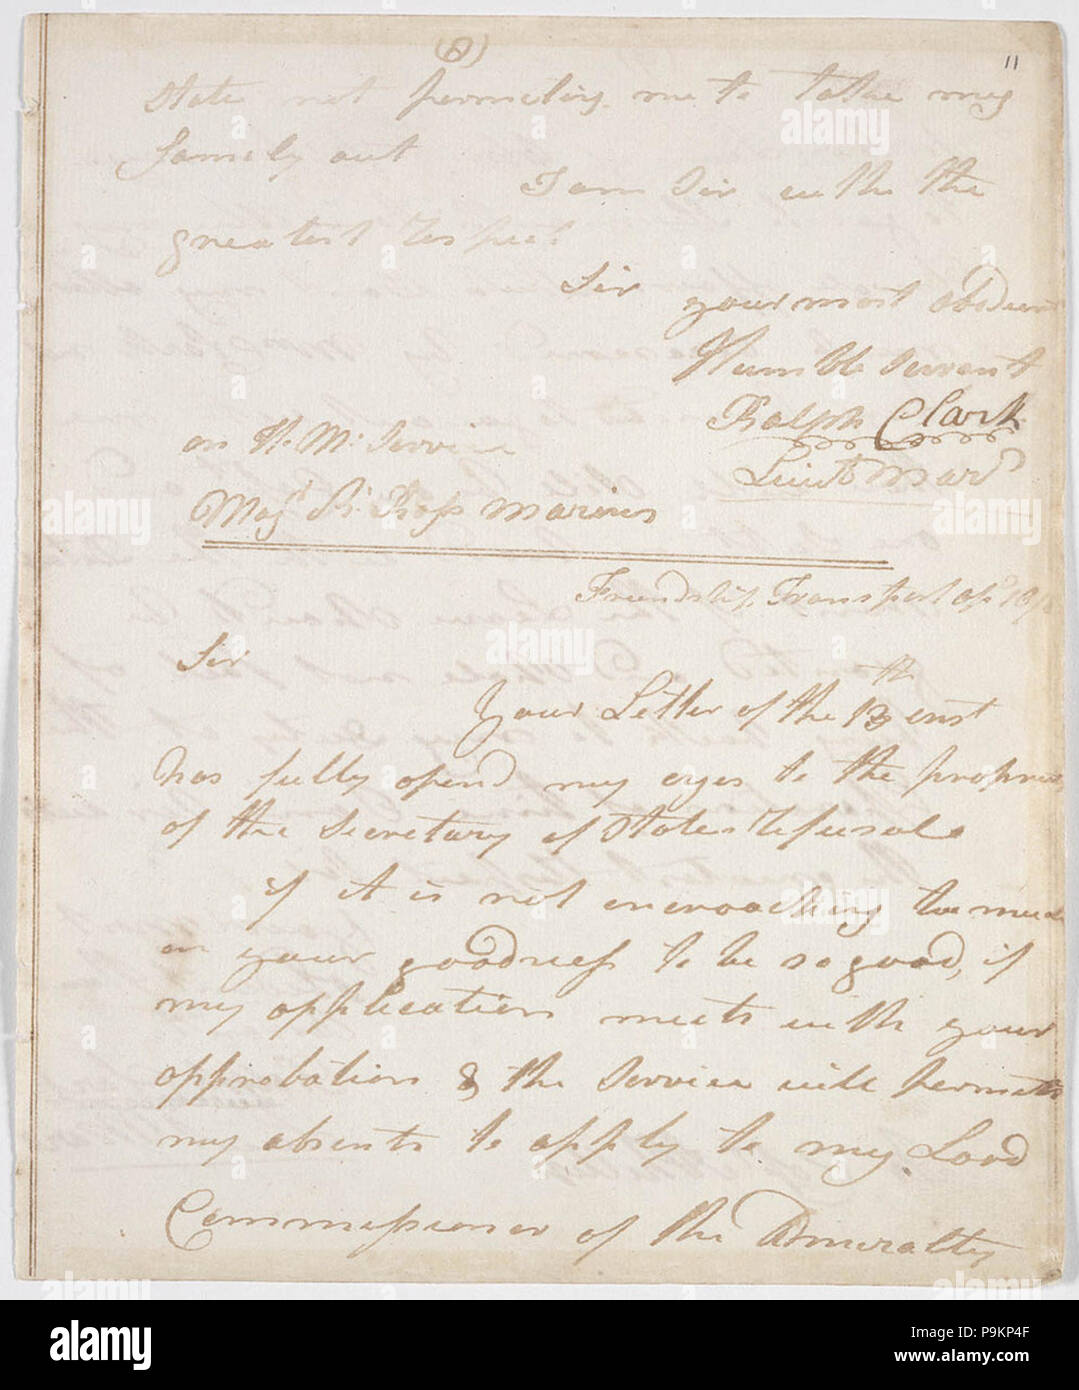 11
State not permiting me to take my
family out
I am Sir with the
greatest respect
Sir
your most obdient
Humble Servant
Ralph Clark
Lieut Mard
on H. M: Service
Majr Rt Ross Marines
Friendship Transport
Sir
Your Letter of the 13th inst
has fully opend my eyes to the
of the Secretary of States refusal
if it is not encroaching too much
on your goodness to be so good, if
my application meets with your
approbation & the Service will permitt
my absents to apply to my Lord
Commissioner of the Admiralty
alamy
alamy
alamy
alamy
alamy
Image ID: P9KP4F
www.alamy.com